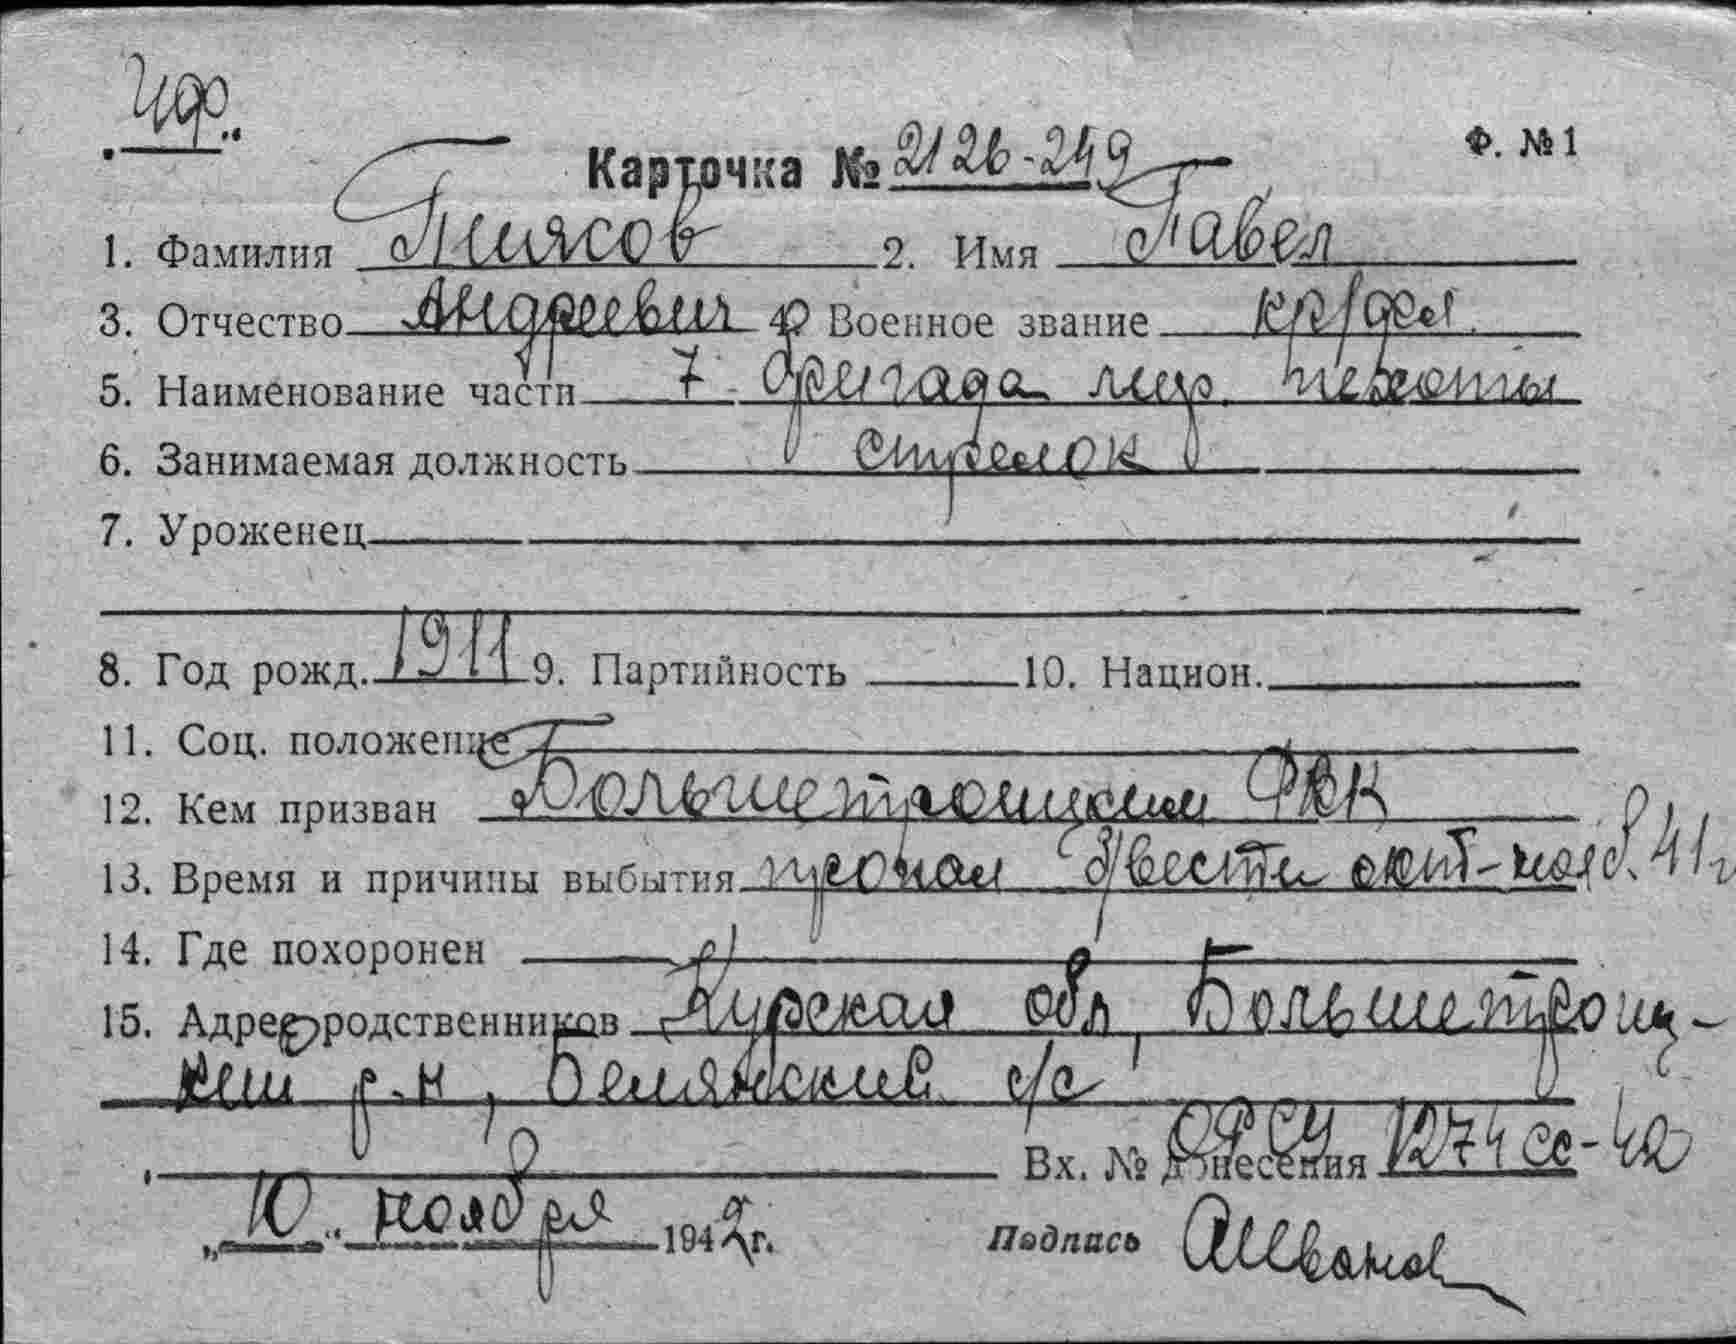 Карточка № 2126-249 Ф. № 1
1. Фамилия 2. Имя Павел
3. Отчество Андреевич 4. Военное звание кр/фл.
5. Наименование части 7 бригада мор. пехоты
6. Занимаемая должность стрелок
7. Уроженец
8. Год рожд. 1911 9. Партийность 10. Национ.
11. Соц. положение
12. Кем призван Большетроицким РВК
13. Время и причины выбытия пропал б/вести окт-нояб. 41г
14. Где похоронен
15. Адрес родственников Курская обл, Большетроиц-
кий р-н, с/с
Вх. № донесения 1274 сс-42
„10“ ноября 1942 г. Подпись